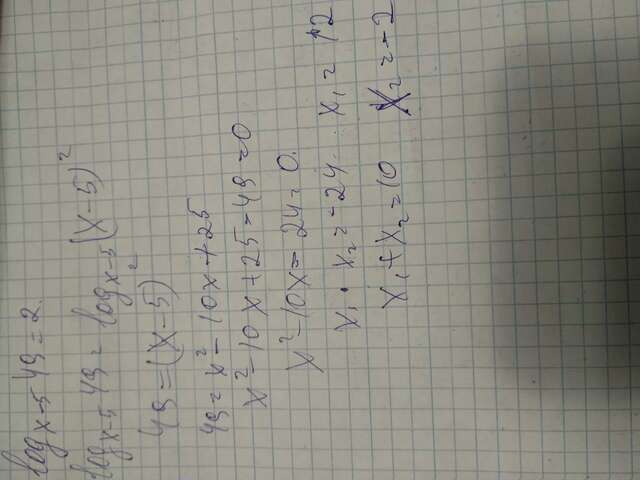 log x-5 49 = 2.
log x-5 49 = log x-5 (x-5)²
49 = (x-5)²
49 = x² - 10x + 25
x² - 10x + 25 - 49 = 0
x² - 10x - 24 = 0.
x₁ · x₂ = -24. x₁ = 12
x₁ + x₂ = 10 x₂ = -2